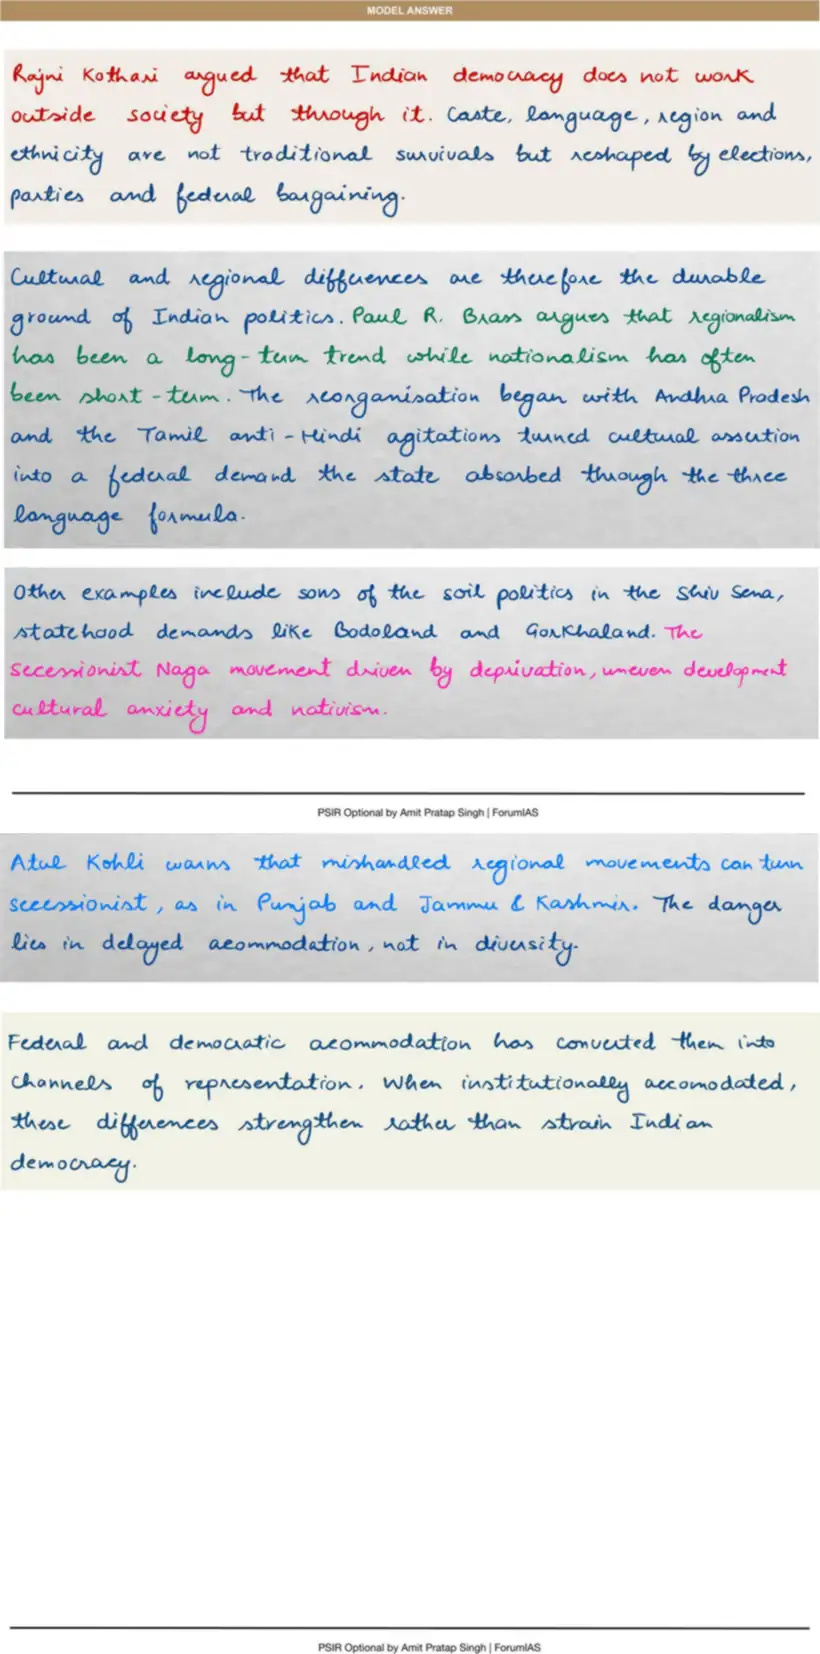 MODEL ANSWER
Rajni Kothari argued that Indian democracy does not work
outside society but through it. Caste, language, region and
ethnicity are not traditional survivals but reshaped by elections,
parties and federal bargaining.
Cultural and regional differences are therefore the durable
ground of Indian politics. Paul R. Brass argues that regionalism
has been a long-term trend while nationalism has often
been short-term. The reorganisation began with Andhra Pradesh
and the Tamil anti-Hindi agitations turned cultural assertion
into a federal demand the state absorbed through the three
language formula.
Other examples include sons of the soil politics in the Shiv Sena,
statehood demands like Bodoland and Gorkhaland. The
secessionist Naga movement driven by deprivation, uneven development
cultural anxiety and nativism.
PSIR Optional by Amit Pratap Singh | ForumIAS
Atul Kohli warns that mishandled regional movements can turn
secessionist, as in Punjab and Jammu & Kashmir. The danger
lies in delayed acommodation, not in diversity.
Federal and democratic acommodation has converted them into
channels of representation. When institutionally accomodated,
these differences strengthen rather than strain Indian
democracy.
PSIR Optional by Amit Pratap Singh | ForumIAS